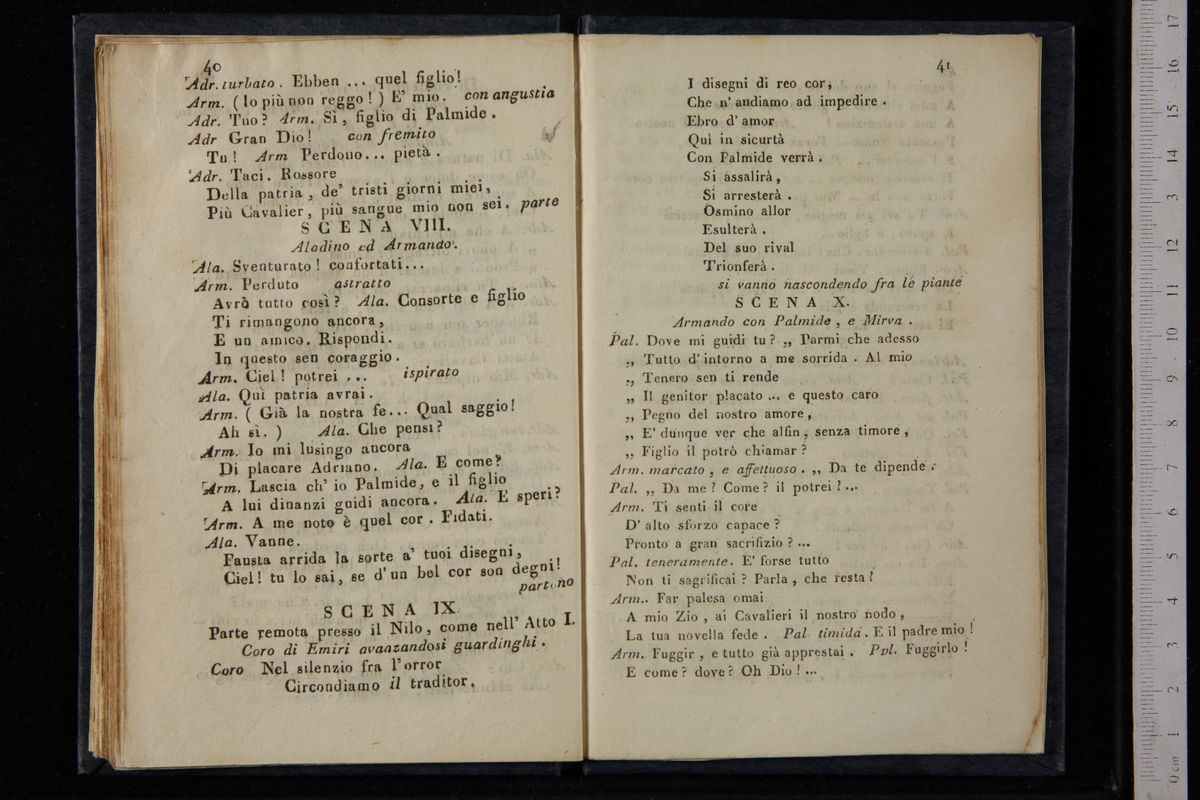 40
Adr. turbato. Ebben ... quel figlio!
Arm. ( Io più non reggo! ) E' mio. con angustia
Adr. Tuo? Arm. Sì, figlio di Palmide.
Adr Gran Dio! con fremito
Tu! Arm Perdono... pietà.
Adr. Taci. Rossore
Della patria, de' tristi giorni miei,
Più Cavalier, più sangue mio non sei. parte
SCENA VIII.
Aladino ed Armando.
Ala. Sventurato! confortati...
Arm. Perduto astratto
Avrò tutto così? Ala. Consorte e figlio
Ti rimangono ancora,
E un amico. Rispondi.
In questo sen coraggio.
Arm. Ciel! potrei ... ispirato
Ala. Qui patria avrai.
Arm. ( Già la nostra fe... Qual saggio!
Ah sì. ) Ala. Che pensi?
Arm. Io mi lusingo ancora
Di placare Adriano. Ala. E come?
Arm. Lascia ch' io Palmide, e il figlio
A lui dinanzi guidi ancora. Ala. E speri?
Arm. A me noto è quel cor. Fidati.
Ala. Vanne.
Fausta arrida la sorte a' tuoi disegni,
Ciel! tu lo sai, se d'un bel cor son degni!
partono
SCENA IX.
Parte remota presso il Nilo, come nell' Atto I.
Coro di Emiri avanzandosi guardinghi.
Coro Nel silenzio fra l'orror
Circondiamo il traditor.
41
I disegni di reo cor,
Che n' andiamo ad impedire.
Ebro d' amor
Quì in sicurtà
Con Palmide verrà.
Si assalirà,
Si arresterà.
Osmino allor
Esulterà.
Del suo rival
Trionferà.
si vanno nascondendo fra le piante
SCENA X.
Armando con Palmide, e Mirva.
Pal. Dove mi guidi tu? „ Parmi che adesso
„ Tutto d' intorno a me sorrida. Al mio
„ Tenero sen ti rende
„ Il genitor placato ... e questo caro
„ Pegno del nostro amore,
„ E' dunque ver che alfin, senza timore,
„ Figlio il potrò chiamar?
Arm. marcato, e affettuoso. „ Da te dipende.
Pal. „ Da me? Come? il potrei? ...
Arm. Ti senti il core
D' alto sforzo capace?
Pronto a gran sacrifizio? ...
Pal. teneramente. E' forse tutto
Non ti sagrificai? Parla, che resta?
Arm.. Far palesa omai
A mio Zio, ai Cavalieri il nostro nodo,
La tua novella fede. Pal timida. E il padre mio!
Arm. Fuggir, e tutto già apprestai. Pal. Fuggirlo!
E come? dove? Oh Dio! ...
0 cm 1 2 3 4 5 6 7 8 9 10 11 12 13 14 15 16 17